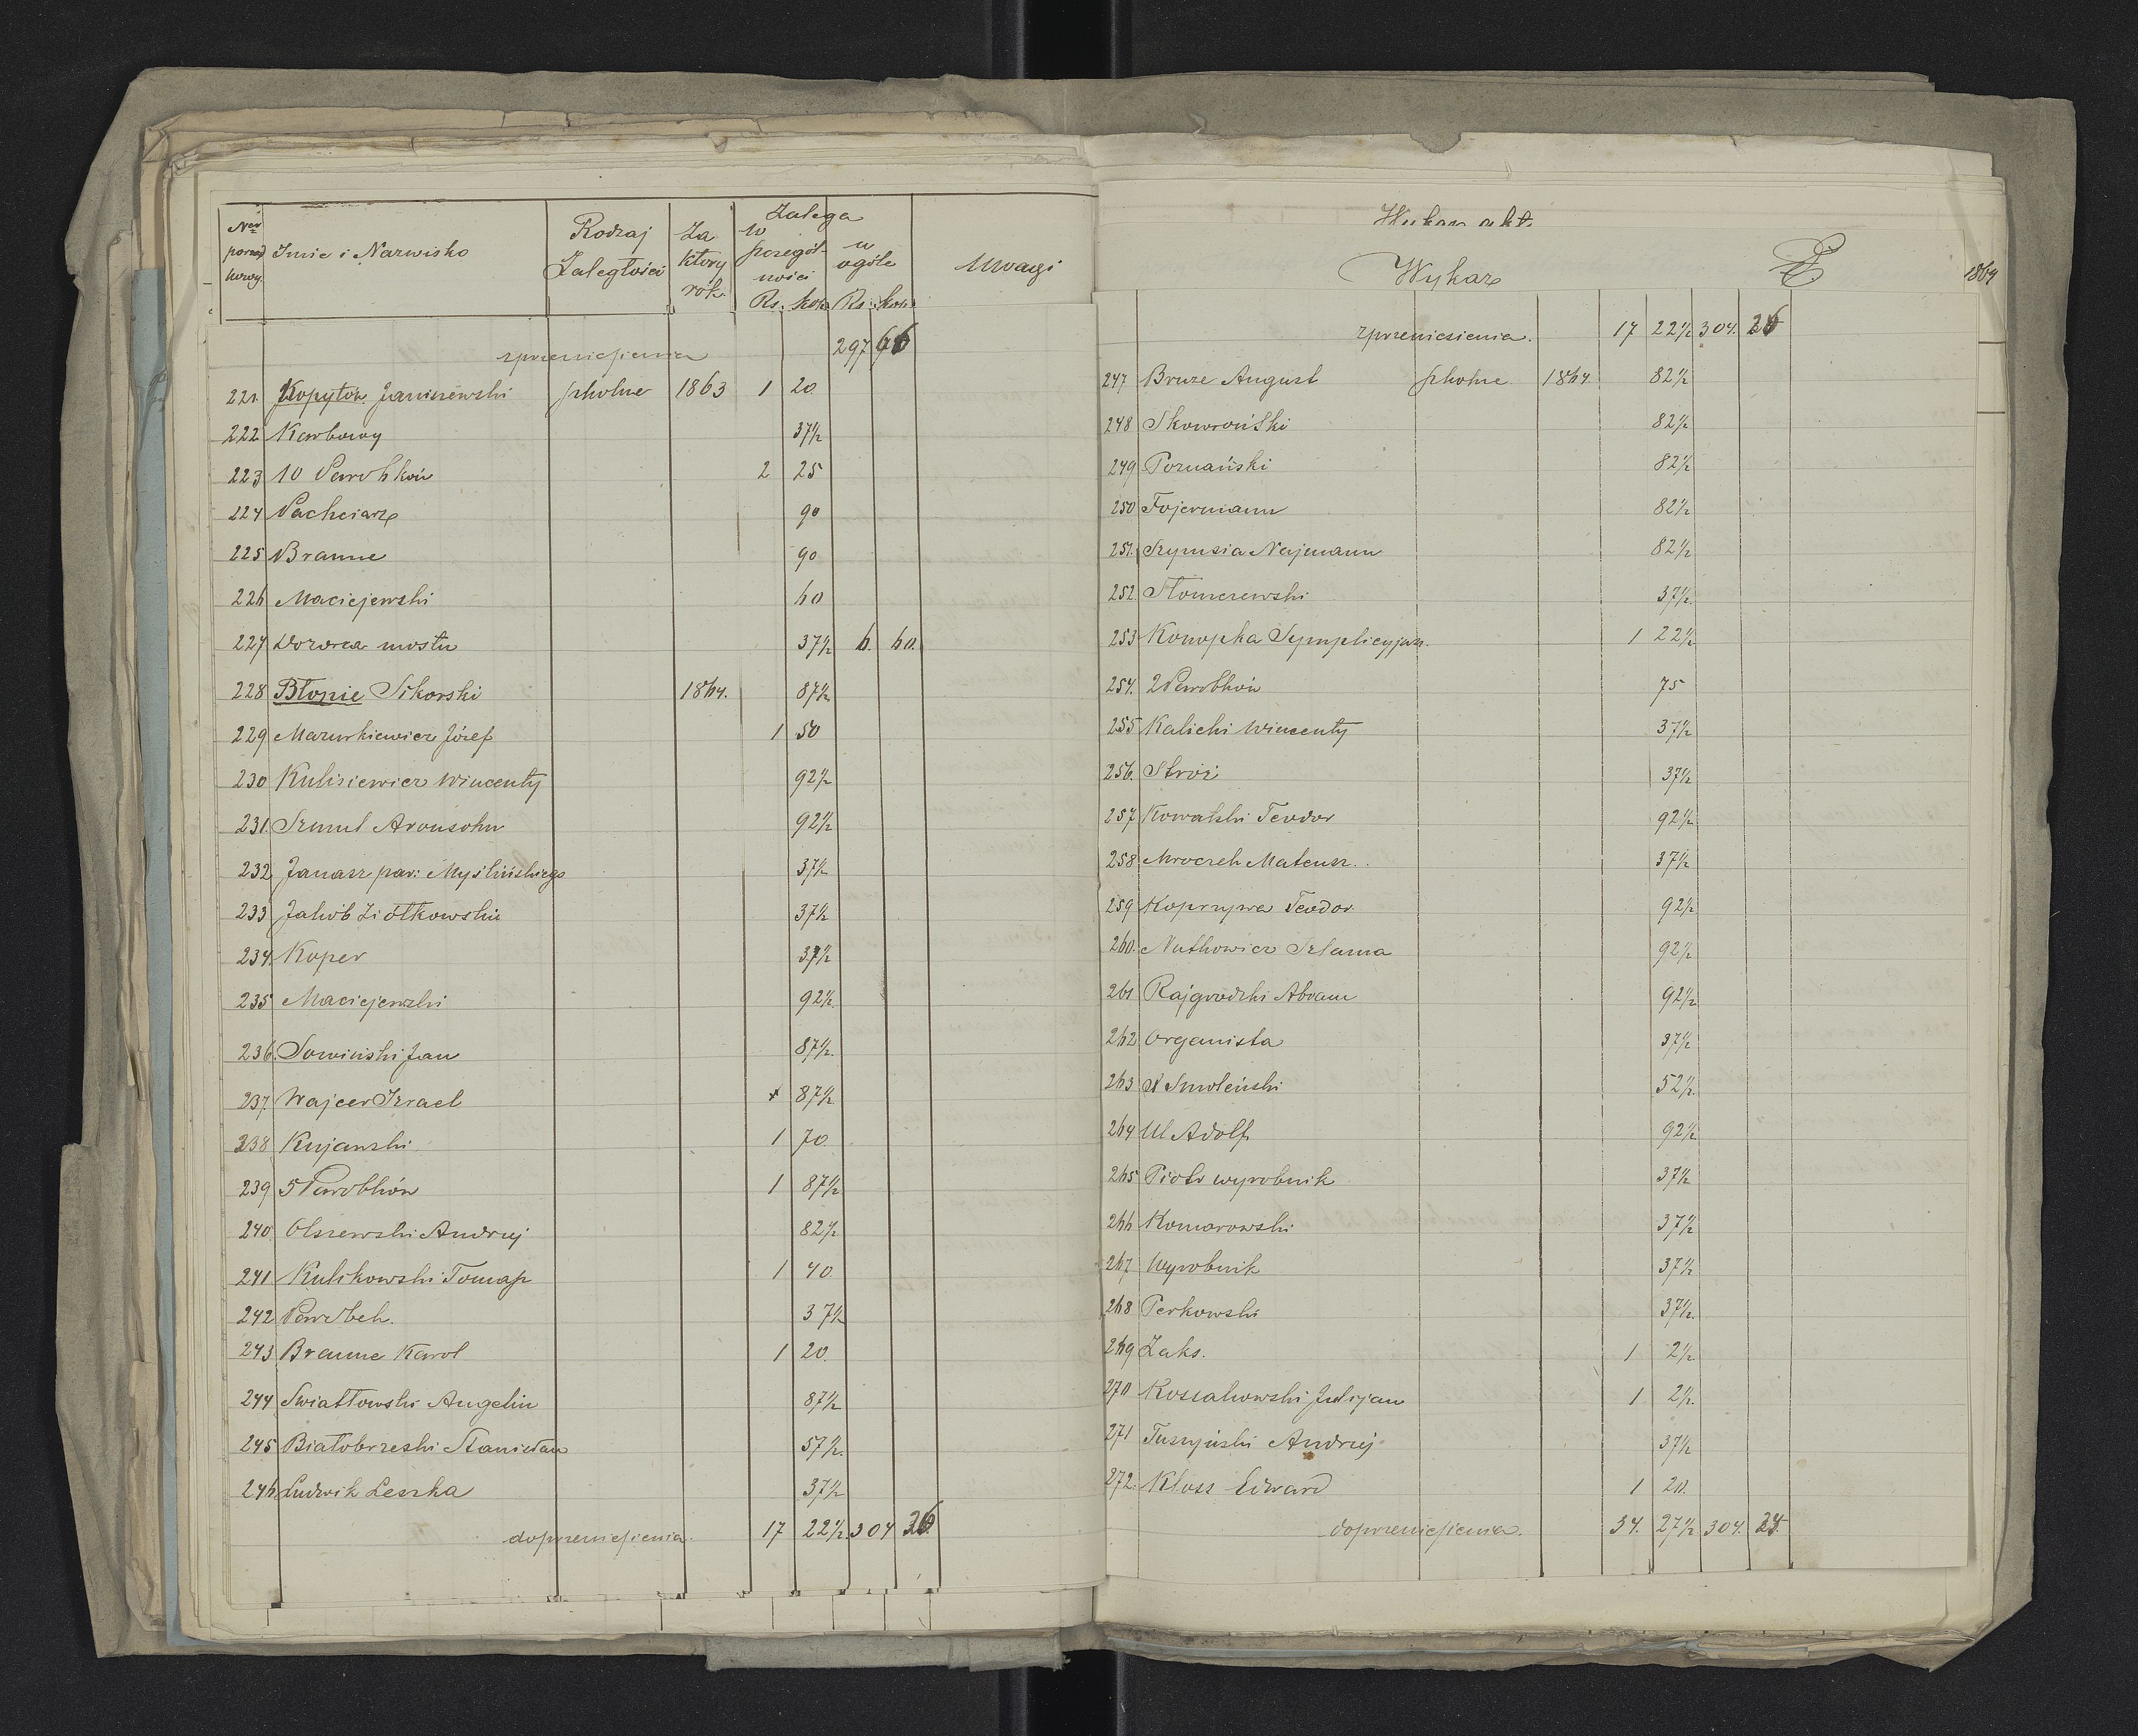 Ner porząd kowy. Imie i Nazwisko Rodzaj Zaległości Za który rok Zalega w szczegółności Rs. kop. w ogóle Rs. kop. Uwagi
zprzeniesienia 297 66
221. Kopytów Janiszewski szkolne 1863 1 20.
222 Karbowy 37½
223 10 Parobków 2 25
224 Pachciarz 90
225 Braune 90
226 Maciejewski 60
227 Dozorca mostu 37½ 6. 60.
228 Błonie Sikorski 1864. 87½
229 Mazurkiewicz Józef 1 50
230 Kulisiewicz Wincenty 92½
231. Szmul Aronsohn 92½
232 Janasz par: Myślińskiego 37½
233 Jakób Ziółkowski 37½
234. Koper 37½
235 Maciejewski 92½
236. Sowiński Jan 87½.
237. Wajcer Izrael 87½
238 Kujawski 1 70.
239 5 Parobków 1 87½
240 Olszewski Andrzej 82½
241 Kulikowski Tomasz 1 40.
242 Parobek. 37½
243 Braune Karol 1 20.
244 Swiatłowski Angelin 87½
245 Białobrzeski Stanisław 57½.
246 Ludwik Leszka 37½
doprzeniesienia. 17 22½ 304 26
Wykaz akt.
Wykaz 1864
zprzeniesienia. 17 22½ 304. 26
247 Bruze August szkolne 1864. 82½
248 Skowroński 82½
249 Poznański 82½
250 Fojermann 82½
251. Szymsia Najmann 82½
252. Słomczewski 37½.
253 Konopka Symplicyjan. 1 22½
254. 2 Parobków 75
255 Kalicki Wincenty 37½
256. Stróż 37½
257 Kowalski Teodor 92½
258 Mroczek Mateusz. 37½
259 Koprzywa Teodor 92½
260. Nutkowicz Szlama 92½
261 Rajgrodzki Abram 92½
262 Organista 37½
263 X Smoleński 52½.
264 Ul Adolf 92½
265 Piotr wyrobnik 37½
266 Komorowski 37½
267 Wyrobnik 37½
268 Perkowski 37½.
269 Zaks. 1 2½.
270 Kossakowski Julijan 1 2½.
271 Tuszyński Andrzej 37½
272. Kloss Edward 1 20.
doprzeniesienia. 34. 27½ 304. 24.